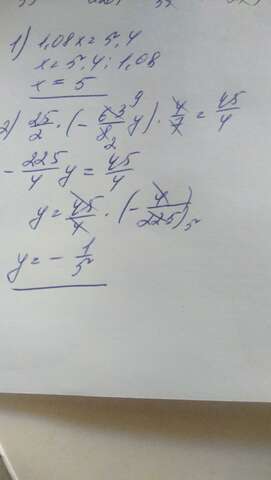 1) 1,08x = 5,4
x = 5,4 : 1,08
x = 5
2) 25/2 · (- 63/8 y) · 4/7 = 45/4
9
2
- 225/4 y = 45/4
y = 45/4 · (- 4/225)
5
y = - 1/5